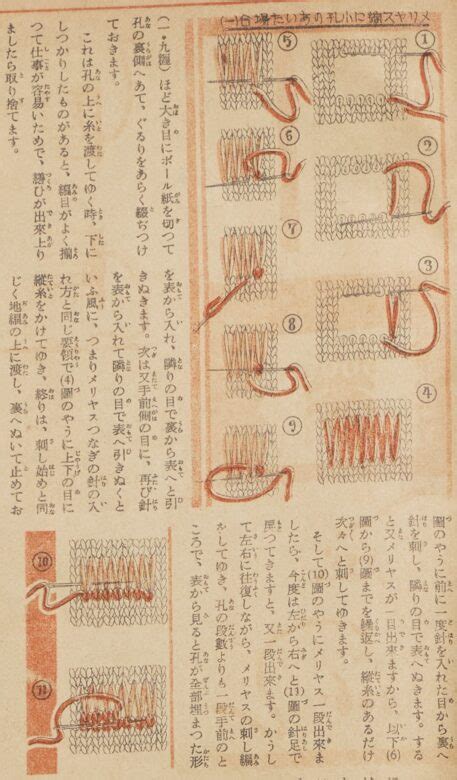 メリヤス編に小孔のあいた場合(一)
①
②
③
④
⑤
⑥
⑦
⑧
⑨
(一・九糎)ほど大き目にボール紙を切つて
孔の裏側へあて、ぐるりをあらく綴ぢつけ
ておきます。
これは孔の上に糸を渡してゆく時、下に
しつかりしたものがあると、編目がよく揃
つて仕事が容易いためで、繕ひが出來上り
ましたら取り捨てます。
を表から入れ、隣りの目で裏から表へと引
きぬきます。次は又手前側の目に、再び針
を表から入れて隣りの目で表へ引きぬくと
いふ風に、つまりメリヤスつなぎの針の入
れ方と同じ要領で(4)圖のやうに上下の目に
縱糸をかけてゆき、終りは、刺し始めと同
じく地編の上に渡し、裏へぬいて止めてお
圖のやうに前に一度針を入れた目から裏へ
針を刺し、隣りの目で表へぬきます。する
と又メリヤスが一目出來ますから、以下(6)
圖から(9)圖までを繰返し、縱糸のあるだけ
次々へと刺してゆきます。
そして(10)圖のやうにメリヤス一段出來ま
したら、今度は左から右へと(11)圖の針足で
戻つてきますと、又一段出來ます。かうし
て左右に往復しながら、メリヤスの刺し編
をしてゆき、孔の段數よりも一段手前のと
ころで、表から見ると孔が全部埋まつた形
⑩
⑪